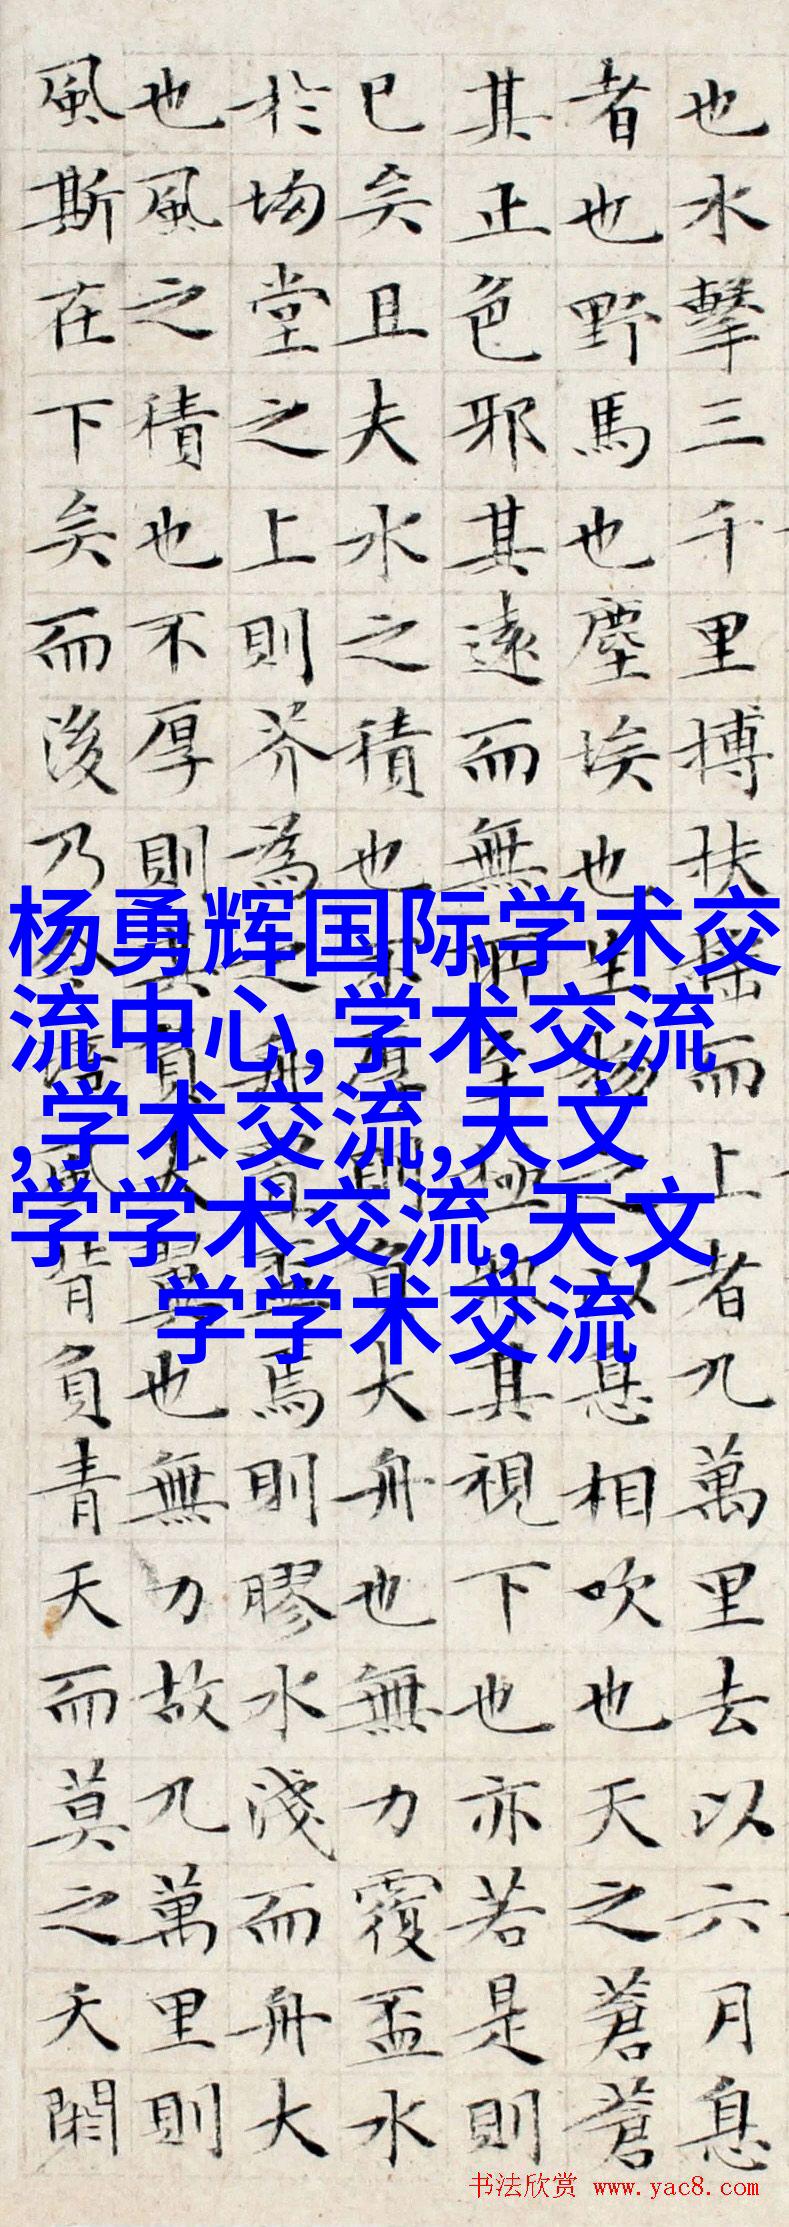 也水擊三千里搏扶搖而上者九萬里去以六月息
者也野馬也塵埃也生物之以息相吹也天之蒼蒼
其正色邪其遠而無所至極邪其視下也亦若是則
已矣且夫水之積也不厚則負大舟也無力覆盃水
於坳堂之上則芥為之舟置盃焉則膠水淺而舟大
也風之積也不厚則其負大翼也無力故九萬里則
風斯在下矣而後乃今培風背負青天而莫之夭閼
杨勇辉国际学术交
流中心,学术交流
,学术交流,天文
学学术交流,天文
学学术交流
书法欣赏 www.yac8.com